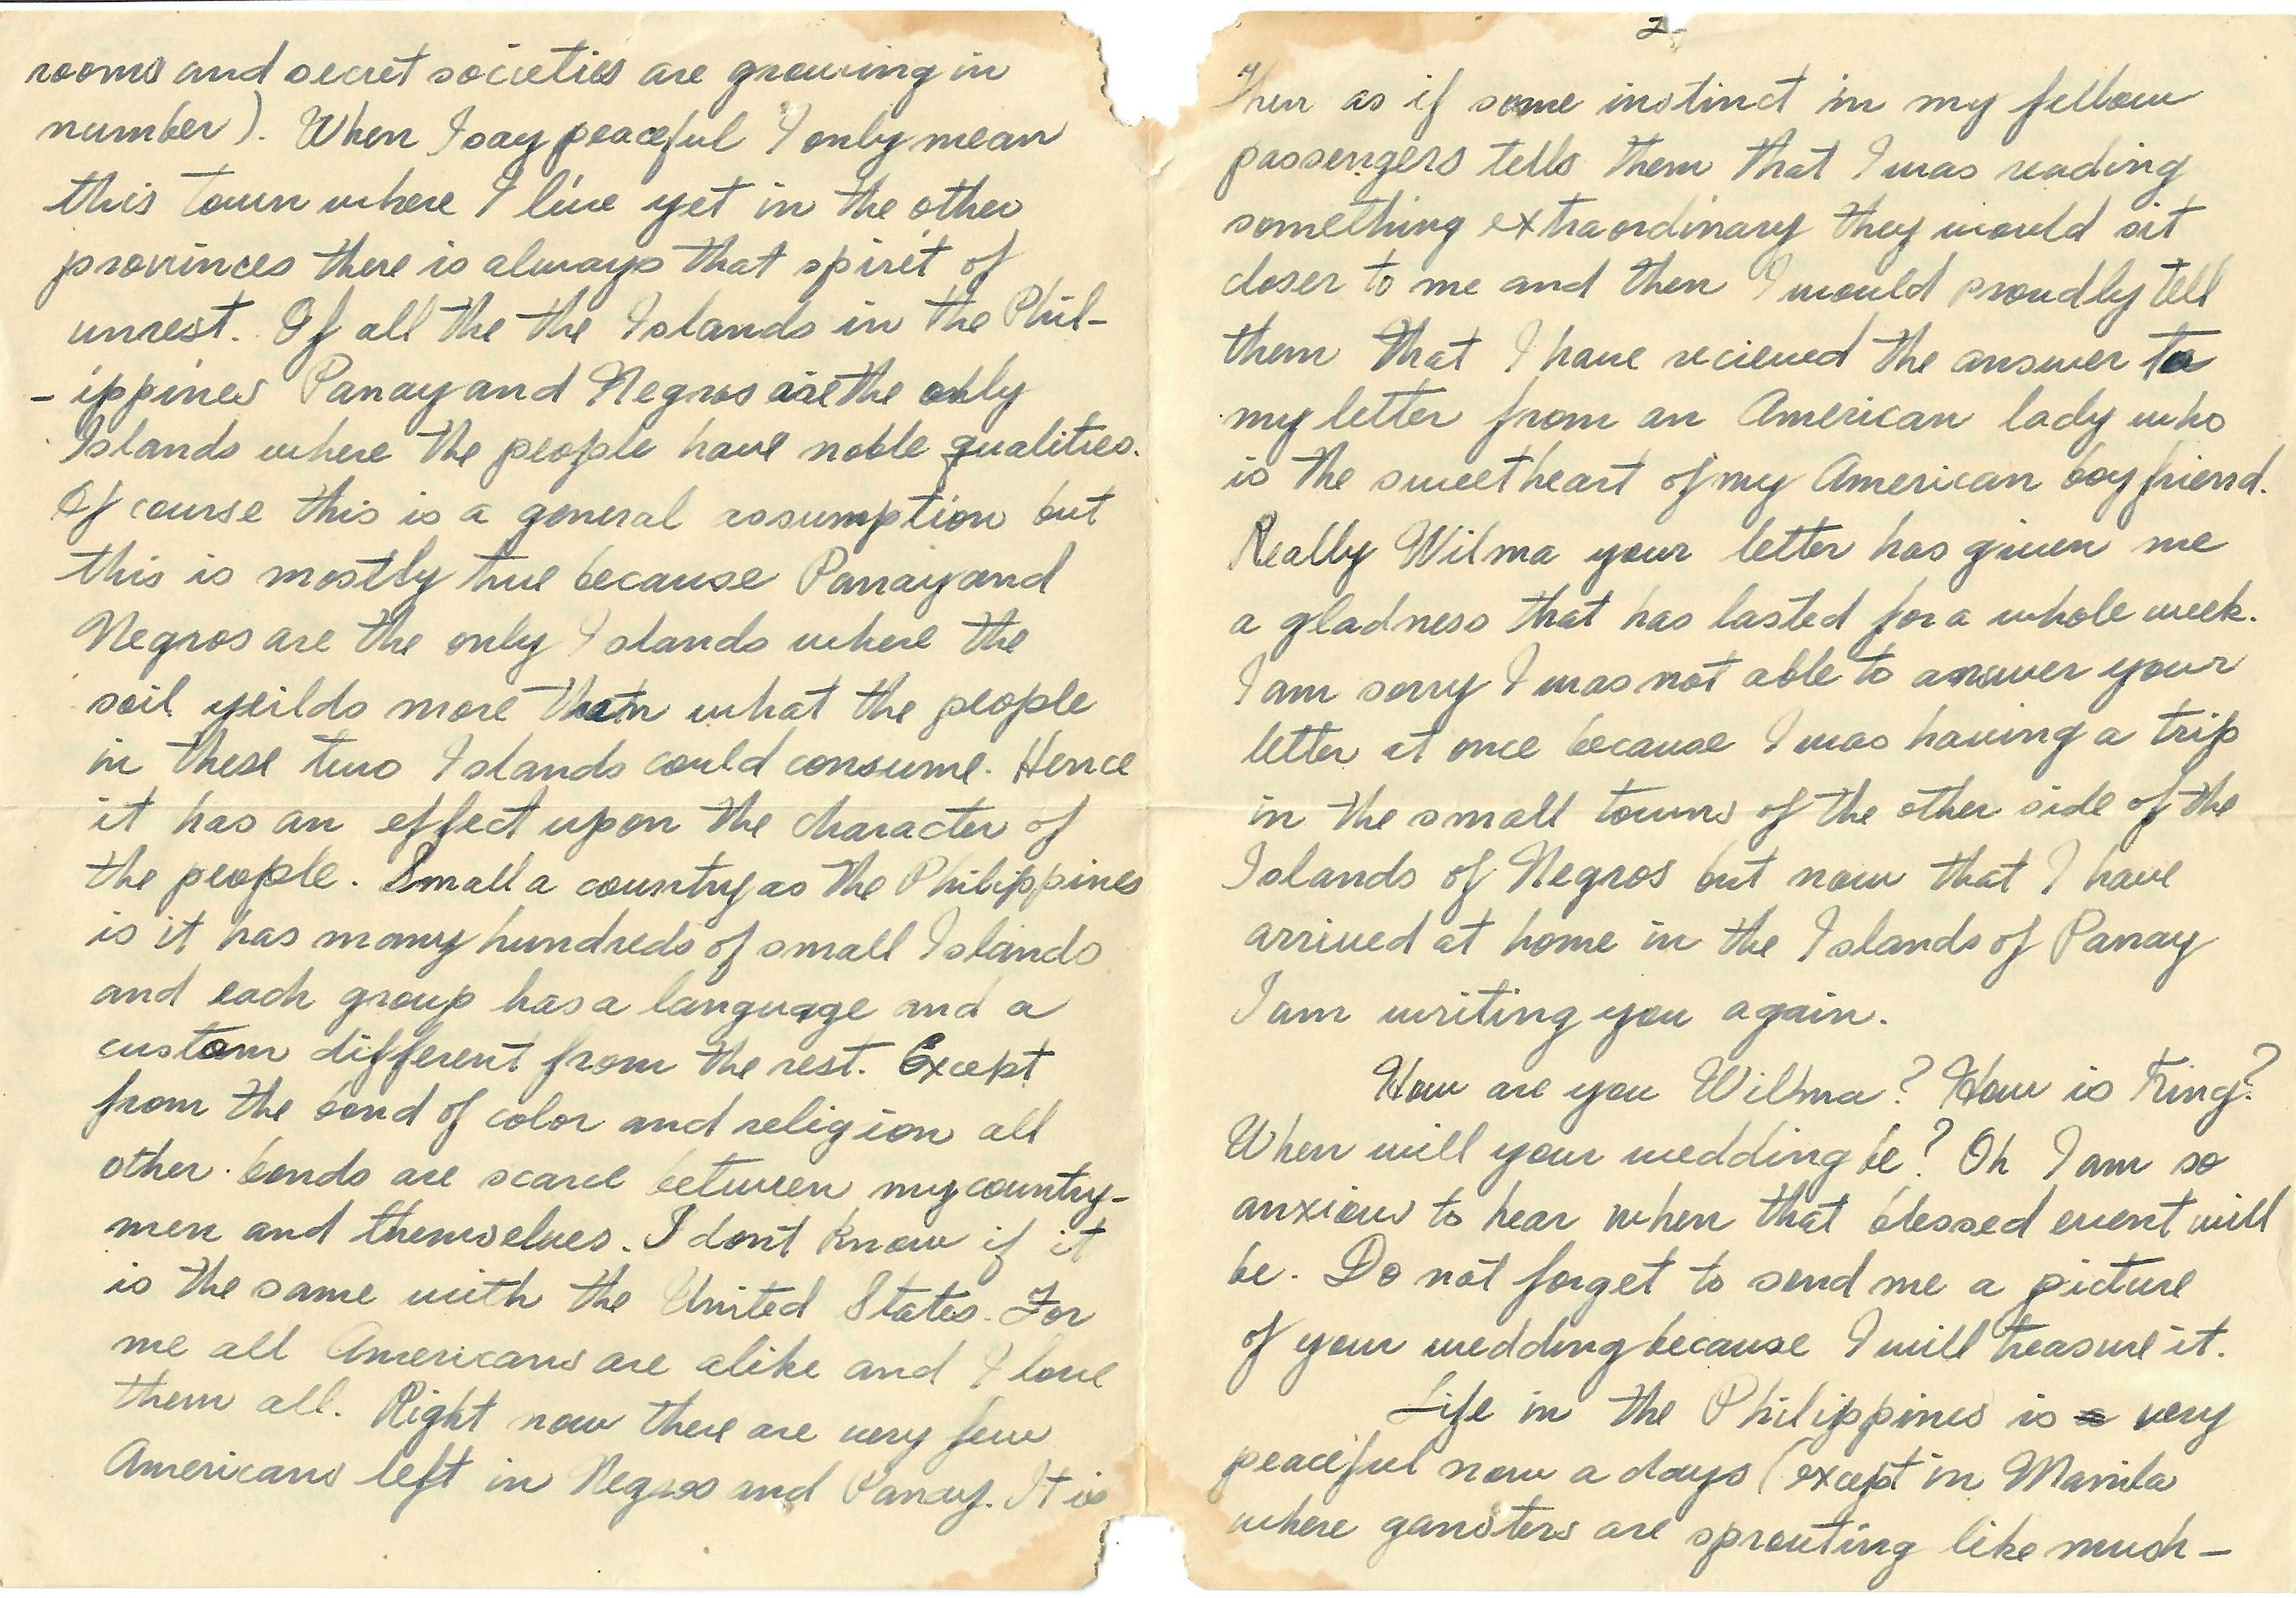 2.
Then as if some instinct in my fellow
passengers tells them that I was reading
something extraordinary they would sit
closer to me and then I would proudly tell
them that I have recieved the answer to
my letter from an American lady who
is the sweetheart of my American boy friend.
Really Wilma your letter has given me
a gladness that has lasted for a whole week.
I am sorry I was not able to answer your
letter at once because I was having a trip
in the small towns of the other side of the
Islands of Negros but now that I have
arrived at home in the Islands of Panay
I am writing you again.
How are you Wilma? How is
When will your wedding be? Oh I am so
anxious to hear when that blessed event will
be. Do not forget to send me a picture
of your wedding because I will treasure it.
Life in the Philippines is very
peaceful now a days (except in Manila
where gansters are sprouting like mush-
rooms and secret societies are growing in
number). When I say peaceful I only mean
this town where I live yet in the other
provinces there is always that spirit of
unrest. Of all the the Islands in the Phil-
-ippines Panay and Negros are the only
Islands where the people have noble qualities.
Of course this is a general assumption but
this is mostly true because Panay and
Negros are the only Islands where the
soil yeilds more than what the people
in these two Islands could consume. Hence
it has an effect upon the character of
the people. Small a country as the Philippines
is it has many hundreds of small Islands
and each group has a language and a
custom different from the rest. Except
from the bond of color and religion all
other bonds are scarce between my country-
men and themselves. I dont know if it
is the same with the United States. For
me all Americans are alike and I love
them all. Right now there are very few
Americans left in Negros and Panay. It is